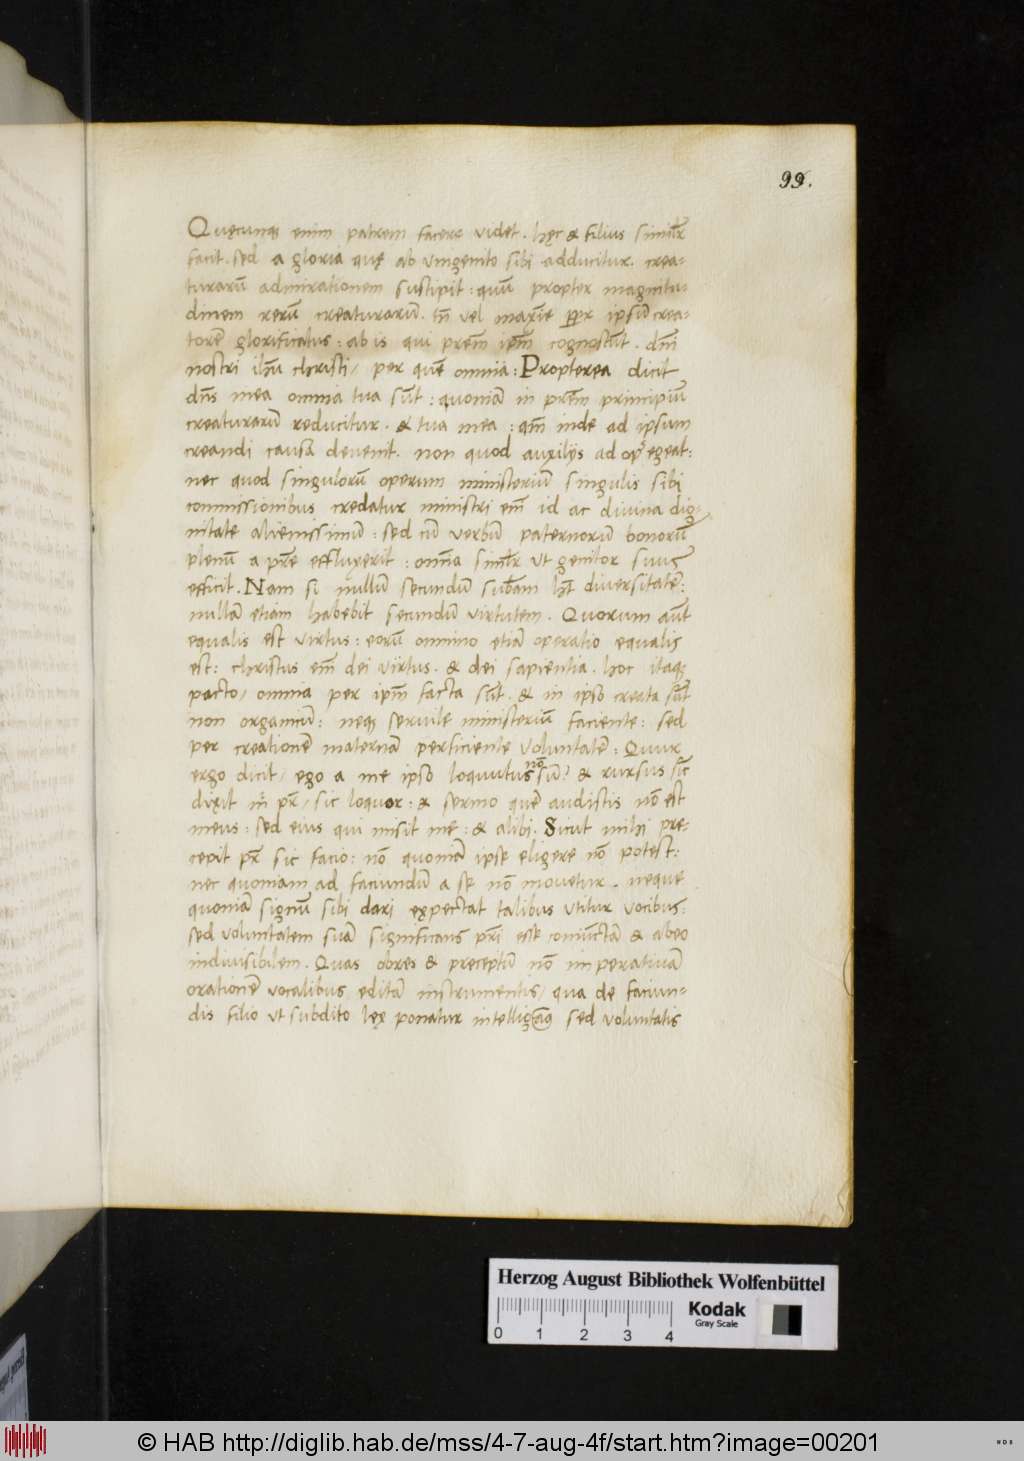 99.
Quęcunqꝫ enim patrem facere videt . hęc & filius simil̃r
facit . sed a gloria quę ab vnigenito sibi adducitur . crea-
turarũ admirationem suscipit : quũ propter magnitu-
dinem rerũ creaturarũ . tñ vel maxĩe ꝓpr ipsũ crea-
torẽ glorificatus : ab is qui prẽm ipm̃ cognoscũt . dñi
nostri ihũ christi / per quẽ omnia : Propterea dicit
dñs mea omnia tua sũt : quoniã in prẽm principiũ
creaturarũ reducitur . & tua mea : qm̃ inde ad ipsum
creandi causã devenit . non quod auxilijs ad opꝰ egeat :
nec quod singulorũ operum ministeriũ singulis sibi
commissionibus credatur ministri em̃ id ac diuina dig-
nitate alienissimũ : sed cũ verbũ paternorũ bonorũ
plenũ a pr̃e effluxerit : omĩa simil̃r vt genitor suus
efficit . Nam si nullũ secundũ subãm hẽt diversitatẽ :
nullã etiam habebit secundũ virtutem . Quorum aũt
equalis est virtus : eorũ omnino etiã operatio equalis
est : christus em̃ dei virtus . & dei sapientia . hoc itaqꝫ
pacto / omnia per ipm̃ facta sũt . & in ipso creata sũt
non organicũ : neqꝫ servile ministeriũ faciente : sed
per creationẽ maternã perficiente voluntatẽ : Quur
ergo dicit / ego a me ipso loquutus nõ sũ ? & rursus sic
dixit m̃ pr̃ / sic loquor : & sermo quẽ audistis nõ est
meus : sed eius qui misit me : & alibi . Sicut mihi pre-
cepit pr̃ sic facio : nõ quoniã ipse eligere nõ potest :
nec quoniam ad faciundũ a se nõ movetur . neque
quoniã signũ sibi dari expectat talibus vtitur vocibus :
sed voluntatem suã significans pr̃i esse coniũctã & abeo
indiuisibilem . Quas obres & preceptũ nõ imperatiuã
orationẽ vocalibus editã instrumentis / qua de faciun-
dis filio vt subdito lex ponatur sed voluntatis
Herzog August Bibliothek Wolfenbüttel
Kodak
Gray Scale
0 1 2 3 4
© HAB http://diglib.hab.de/mss/4-7-aug-4f/start.htm?image=00201